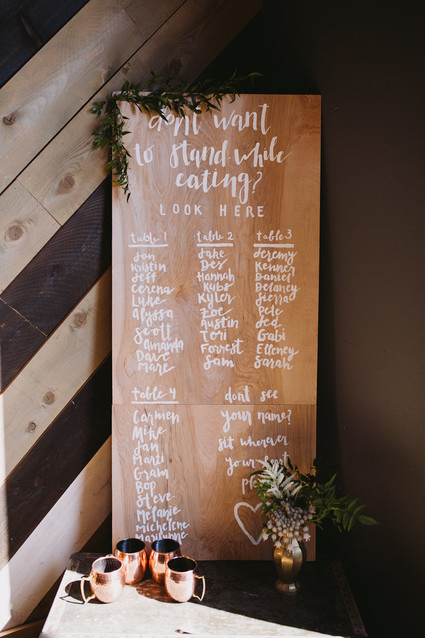 don't want
to stand while
eating?
LOOK HERE
table 1
Jon
Kristin
Jeff
Cerena
Luke
Alyssa
Scott
Amanda
Dave
Marc
table 2
Jake
Des
Hannah
Kubs
Kyler
Zoe
Austin
Tori
Forrest
Sam
table 3
Jeremy
Kenner
Daniel
Delaney
Sierra
Pete
Jed
Gabi
Elleney
Sarah
table 4
Carmen
Mike
Jan
Marti
Gram
Bop
Steve
Melanie
Michelene
don't see
your name?
sit wherever
your heart